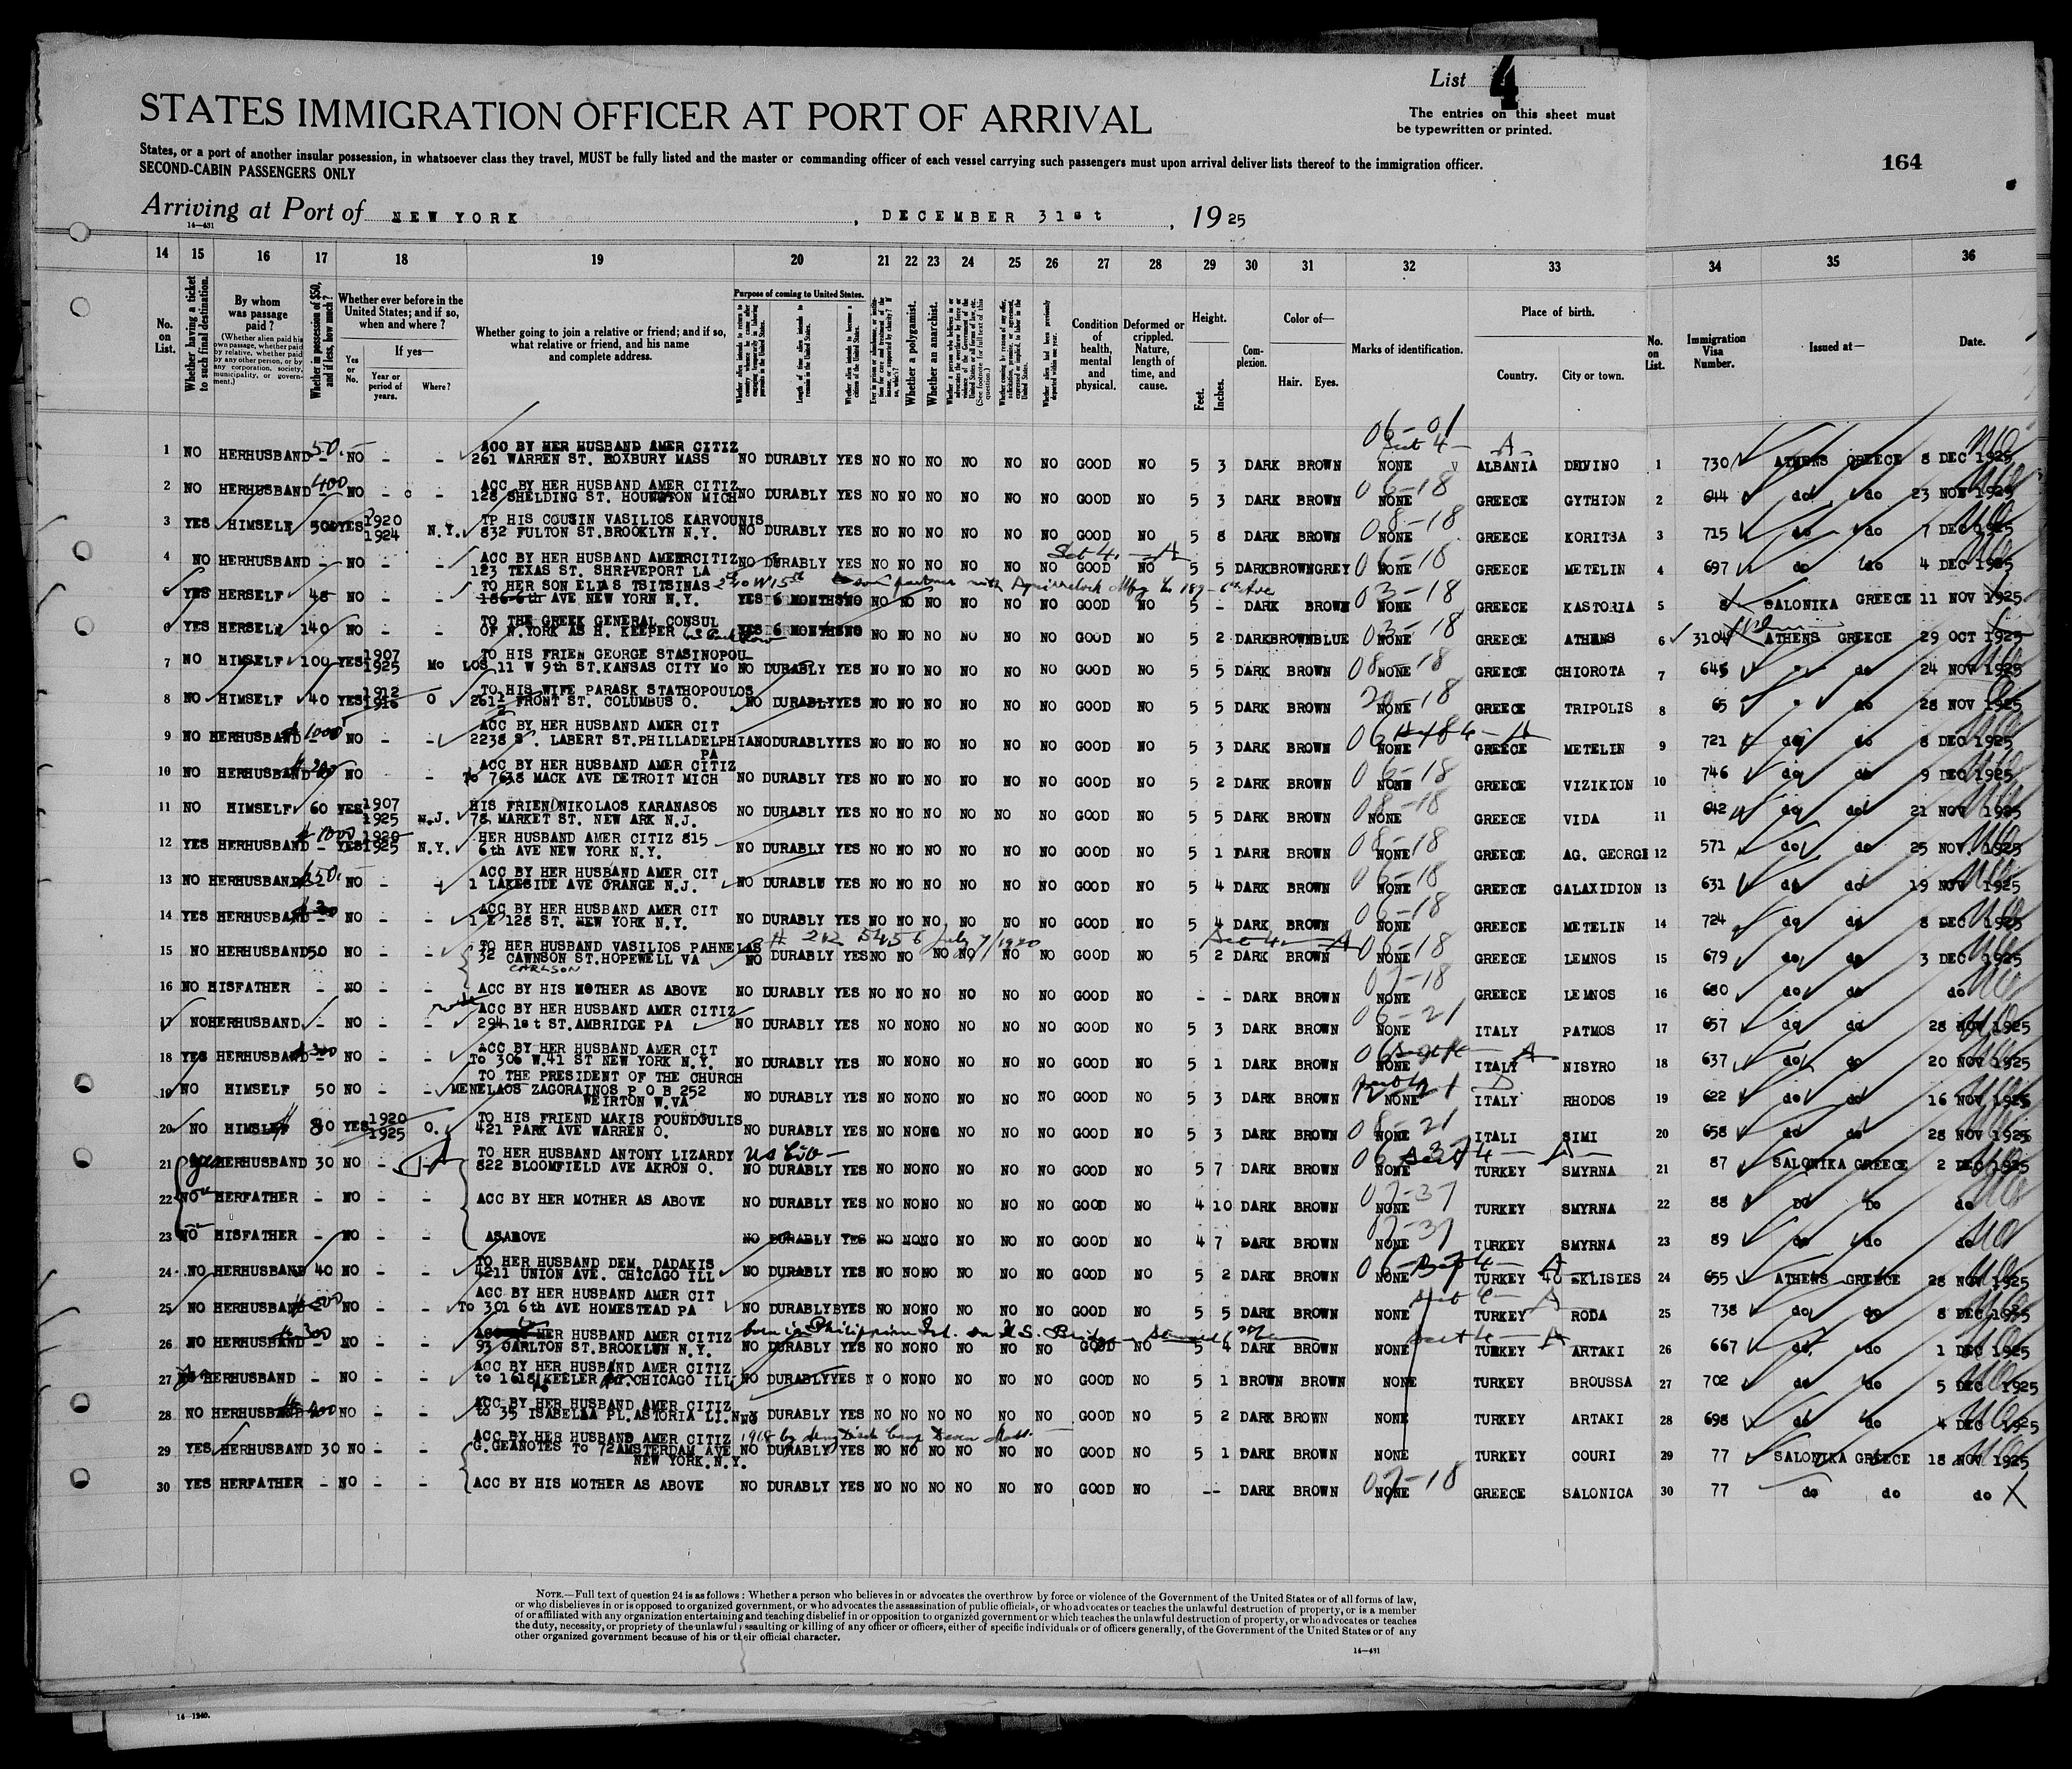 List 4
STATES IMMIGRATION OFFICER AT PORT OF ARRIVAL
The entries on this sheet must
be typewritten or printed.
States, or a port of another insular possession, in whatsoever class they travel, MUST be fully listed and the master or commanding officer of each vessel carrying such passengers must upon arrival deliver lists thereof to the immigration officer.
SECOND-CABIN PASSENGERS ONLY
164
Arriving at Port of NEW YORK, DECEMBER 31st, 1925
14-431
14 15 16 17 18 19 20 21 22 23 24 25 26 27 28 29 30 31 32 33 34 35 36
No. on List.
Whether having a ticket to such final destination.
By whom was passage paid?
(Whether alien paid his own passage, whether paid by relative, whether paid by any other person, or by any corporation, society, municipality, or government.)
Whether in possession of $50, and if less, how much?
Whether ever before in the United States; and if so, when and where?
Yes or No.
If yes—
Year or period of years.
Where?
Whether going to join a relative or friend; and if so, what relative or friend, and his name and complete address.
Purpose of coming to United States.
Length of time alien intends to remain in the United States.
Whether alien intends to become a citizen of the United States.
Whether a polygamist.
Whether an anarchist.
Condition of health, mental and physical.
Deformed or crippled. Nature, length of time, and cause.
Height.
Feet.
Inches.
Complexion.
Color of—
Hair. Eyes.
Marks of identification.
Place of birth.
Country.
City or town.
No. on List.
Immigration Visa Number.
Issued at—
Date.
1 NO HERHUSBAND 50. - NO - - ACC BY HER HUSBAND AMER CITIZ
261 WARREN ST. ROXBURY MASS NO DURABLY YES NO NO NO NO NO NO GOOD NO 5 3 DARK BROWN NONE ALBANIA DELVINO 1 730 ATHENS GREECE 8 DEC 1925
06-01
2 NO HERHUSBAND 400 NO - - ACC BY HER HUSBAND AMER CITIZ
128 SHELDING ST. HOUNGTON MICH NO DURABLY YES NO NO NO NO NO NO GOOD NO 5 3 DARK BROWN NONE GREECE GYTHION 2 644 do do 23 NOV 1925
06-18
3 YES HIMSELF 500 YES 1920 1924 N.Y. TP HIS COUSIN VASILIOS KARVOUNIS
832 FULTON ST.BROOKLYN N.Y. NO DURABLY YES NO NO NO NO NO NO GOOD NO 5 8 DARK BROWN NONE GREECE KORITSA 3 715 do do 7 DEC 1925
08-18
4 NO HERHUSBAND - NO - - ACC BY HER HUSBAND AMERRCITIZ
123 TEXAS ST. SHREVEPORT LA NO DURABLY YES NO NO NO NO NO NO GOOD NO 5 5 DARK BROWN GREY NONE GREECE METELIN 4 697 do do 4 DEC 1925
06-18
5 YES HERSELF 45 NO - - TO HER SON ELIAS TSITSINAS 240 W 15 st
186 6th AVE NEW YORN N.Y. YES 6 MONTHS NO NO NO NO NO NO NO GOOD NO 5 - DARK BROWN NONE GREECE KASTORIA 5 8 SALONIKA GREECE 11 NOV 1925
03-18
6 YES HERSELF 140 NO - - TO THE GREEK GENERAL CONSUL
OF N.YORK AS H. KEEPER YES 6 MONTHS NO NO NO NO NO NO NO GOOD NO 5 2 DARK BROWN BLUE NONE GREECE ATHENS 6 3104 ATHENS GREECE 29 OCT 1925
03-18
7 NO HIMSELF 100 YES 1907 1925 Mo TO HIS FRIEN GEORGE STASINOPOU
LOS 11 W 9th ST.KANSAS CITY Mo NO DURABLY YES NO NO NO NO NO NO GOOD NO 5 5 DARK BROWN NONE GREECE CHIOROTA 7 645 " do 24 NOV 1925
08 18
8 NO HIMSELF 40 YES 1912 1916 O TO HIS WIFE PARASK STATHOPOULOS
261½ FRONT ST. COLUMBUS O. NO DURABLY YES NO NO NO NO NO NO GOOD NO 5 5 DARK BROWN NONE GREECE TRIPOLIS 8 65 " do 28 NOV 1925
20-18
9 NO HERHUSBAND 1000 NO - - ACC BY HER HUSBAND AMER CIT
2238 S. LABERT ST.PHILLADELPHIA PA NO DURABLY YES NO NO NO NO NO NO GOOD NO 5 3 DARK BROWN NONE GREECE METELIN 9 721 do do 8 DEC 1925
10 NO HERHUSBAND NO - ACC BY HER HUSBAND AMER CITIZ
To 7618 MACK AVE DETROIT MICH NO DURABLY YES NO NO NO NO NO NO GOOD NO 5 2 DARK BROWN NONE GREECE VIZIKION 10 746 do do 9 DEC 1925
06-18
11 NO HIMSELF 60 YES 1907 1925 N.J. HIS FRIEND NIKOLAOS KARANASOS
78 MARKET ST. NEW ARK N.J. NO DURABLY YES NO NO NO NO NO NO GOOD NO 5 5 DARK BROWN NONE GREECE VIDA 11 642 do do 21 NOV 1925
08-18
12 YES HERHUSBAND 1000 - YES 1920 1925 N.Y. HER HUSBAND AMER CITIZ 815
6th AVE NEW YORK N.Y. NO DURABLY YES NO NO NO NO NO NO GOOD NO 5 1 DARK BROWN NONE GREECE AG. GEORGE 12 571 do do 25 NOV. 1925
08-18
13 NO HERHUSBAND NO - - ACC BY HER HUSBAND AMER CIT
1 LAKESIDE AVE ORANGE N.J. NO DURABLU YES NO NO NO NO NO NO GOOD NO 5 4 DARK BROWN NONE GREECE GALAXIDION 13 631 do do 19 NOV 1925
06-18
14 YES HERHUSBAND NO - - ACC BY HER HUSBAND AMER CIT
1 E 128 ST. NEW YORK N.Y. NO DURABLY YES NO NO NO NO NO NO GOOD NO 5 4 DARK BROWN NONE GREECE METELIN 14 724 do do 8 DEC 1925
06-18
15 NO HERHUSBAND 50 NO - - TO HER HUSBAND VASILIOS PAHNELAS # 212 5456 July 7/1920
32 CAWNSON ST.HOPEWELL VA NO DURABLY YES NO NO NO NO NO NO GOOD NO 5 2 DARK BROWN NONE GREECE LEMNOS 15 679 do do 3 DEC 1925
CARLSON
06-18
16 NO HISFATHER - NO - - ACC BY HIS MOTHER AS ABOVE NO DURABLY YES NO NO NO NO NO NO GOOD NO - - DARK BROWN NONE GREECE LEMNOS 16 680 do do do
07-18
17 NO HERHUSBAND - NO - - ACC BY HER HUSBAND AMER CITIZ
294 1st ST.AMBRIDGE PA NO DURABLY YES NO NO NO NO NO NO GOOD NO 5 3 DARK BROWN NONE ITALY PATMOS 17 657 do do 28 NOV 1925
06-21
18 YES HERHUSBAND 300 NO - - ACC BY HER HUSBAND AMER CIT
To 306 W.41 ST NEW YORK N.Y. NO DURABLY YES NO NO NO NO NO NO GOOD NO 5 1 DARK BROWN NONE ITALY NISYRO 18 637 do do 20 NOV 1925
19 NO HIMSELF 50 NO - - TO THE PRESIDENT OF THE CHURCH
MENELAOS ZAGORAINOS P O B 252
WEIRTON W.VA NO DURABLY YES NO NO NO NO NO NO GOOD NO 5 3 DARK BROWN NONE ITALY RHODOS 19 622 do do 16 NOV 1925
20 NO HIMSLEF 80 YES 1920 1925 O. TO HIS FRIEND MAKIS FOUNDOULIS
421 PARK AVE WARREN O. NO DURABLY YES NO NO NO NO NO NO GOOD NO 5 3 DARK BROWN NONE ITALI SIMI 20 658 do do 28 NOV 1925
08-21
21 HERHUSBAND 30 NO - TO HER HUSBAND ANTONY LIZARDY
822 BLOOMFIELD AVE AKRON O. NO DURABLY YES NO NO NO NO NO NO GOOD NO 5 7 DARK BROWN NONE TURKEY SMYRNA 21 87 SALONIKA GREECE 2 DEC 1925
22 NO HERFATHER - NO - - ACC BY HER MOTHER AS ABOVE NO DURABLY YES NO NO NO NO NO NO GOOD NO 4 10 DARK BROWN NONE TURKEY SMYRNA 22 88 DO Do do
07-37
23 NO HISFATHER - NO - - ASABOVE NO DURABLY YES NO NO NO NO NO NO GOOD NO 4 7 DARK BROWN NONE TURKEY SMYRNA 23 89 do do do
07-37
24 NO HERHUSBAND 40 NO - - TO HER HUSBAND DEM. DADAKIS
4211 UNION AVE. CHICAGO ILL NO DURABLY YES NO NO NO NO NO NO GOOD NO 5 2 DARK BROWN NONE TURKEY 40 EKLISIES 24 655 ATHENS GREECE 28 NOV 1925
25 NO HERHUSBAND NO - - ACC BY HER HUSBAND AMER CIT
To 301 6th AVE HOMESTEAD PA NO DURABLYBYES NO NO NO NO NO NO GOOD NO 5 5 DARK BROWN NONE TURKEY RODA 25 738 do do 8 DEC 1925
26 NO HERHUSBAND 300 - NO - - HER HUSBAND AMER CITIZ born in Philippine Isl. on U.S.
93 CARLTON ST.BROOKLUN N.Y. NO DURABLY YES NO NO NO NO NO NO GOOD NO 5 4 DARK BROWN NONE TURKEY ARTAKI 26 667 do do 1 DEC 1925
27 HERHUSBAND - NO - - ACC BY HER HUSBAND AMER CITIZ
to 1618 KEELER CHICAGO ILL NO DURABLYYES N O NO NO NO NO NO GOOD NO 5 1 BROWN BROWN NONE TURKEY BROUSSA 27 702 do do 5 DEC 1925
28 NO HERHUSBAND NO - - ACC BY HER HUSBAND AMER CITIZ
to 35 ISABELLA PL.ASTORIA LI.N.Y DURABLY YES NO NO NO NO NO NO GOOD NO 5 2 DARK BROWN NONE TURKEY ARTAKI 28 698 do do 4 DEC 1925
29 YES HERHUSBAND 30 NO - - ACC BY HER HUSBAND AMER CITIZ
G.GEANOTES To 72AMSTERDAM AVE
NEW YORK.N.Y. NO DURABLY YES NO NO NO NO NO NO GOOD NO 5 1 DARK BROWN NONE TURKEY COURI 29 77 SALONIKA GREECE 18 NOV 1925
30 YES HERFATHER - NO - - ACC BY HIS MOTHER AS ABOVE NO DURABLY YES NO NO NO NO NO NO GOOD NO -- DARK BROWN NONE GREECE SALONICA 30 77 do do do X
07-18
NOTE.—Full text of question 24 is as follows: Whether a person who believes in or advocates the overthrow by force or violence of the Government of the United States or of all forms of law,
or who disbelieves in or is opposed to organized government, or who advocates the assassination of public officials, or who advocates or teaches the unlawful destruction of property, or is a member
of or affiliated with any organization entertaining and teaching disbelief in or opposition to organized government or which teaches the unlawful destruction of property, or who advocates or teaches
the duty, necessity, or propriety of the unlawful assaulting or killing of any officer or officers, either of specific individuals or of officers generally, of the Government of the United States or of any
other organized government because of his or their official character.
14-431
14-1240.